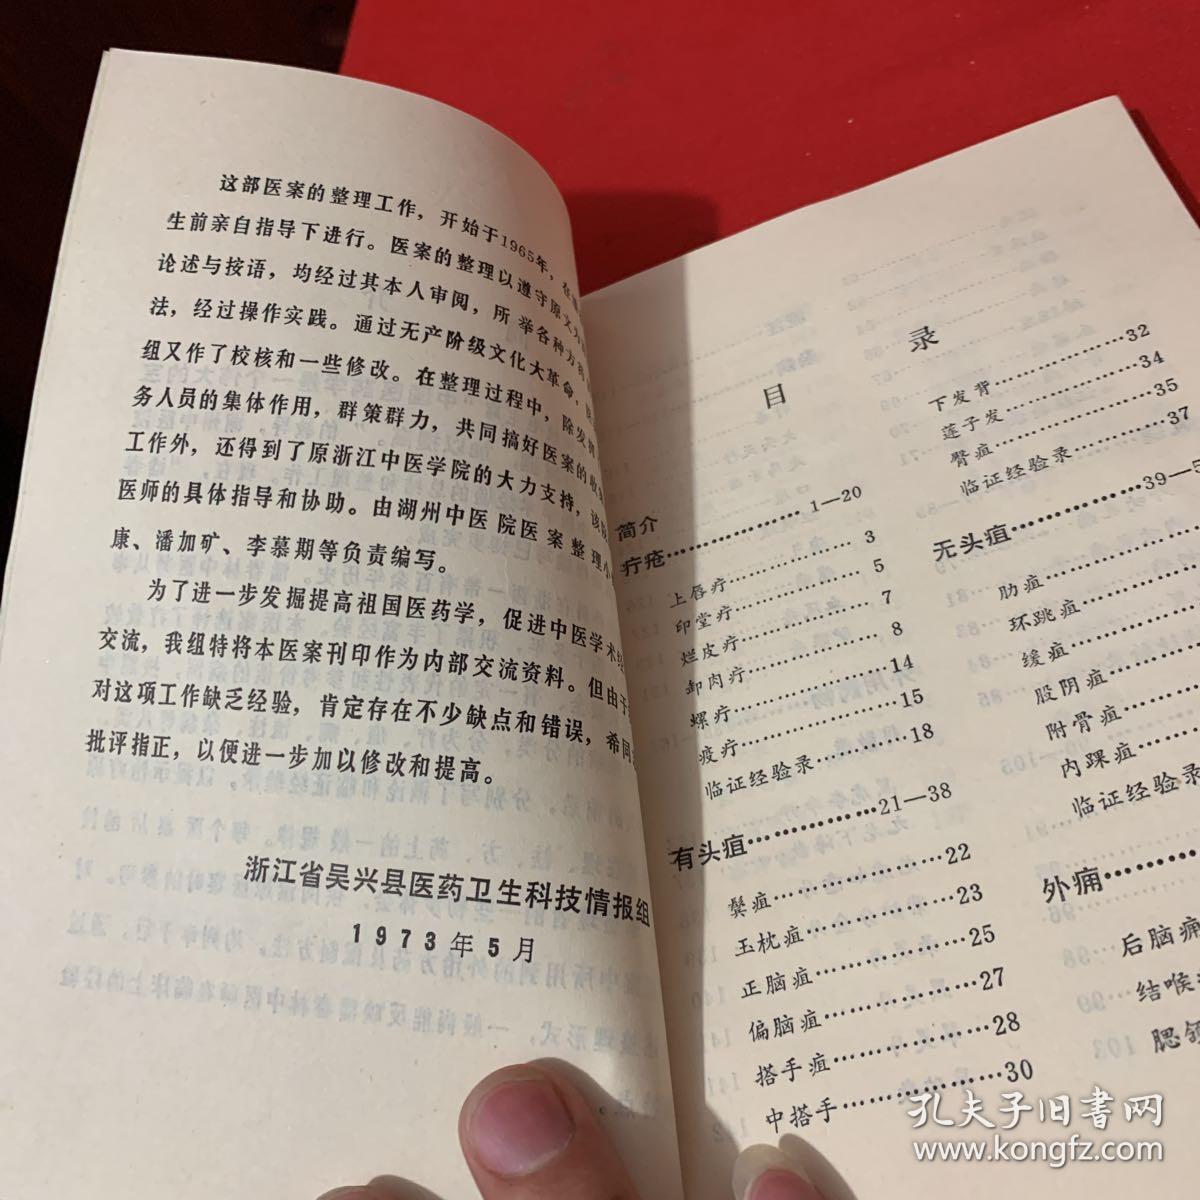 这部医案的整理工作，开始于1965年，在
生前亲自指导下进行。医案的整理以遵守原文为
论述与按语，均经过其本人审阅，所举各种方药
法，经过操作实践。通过无产阶级文化大革命，
组又作了校核和一些修改。在整理过程中，除发
务人员的集体作用，群策群力，共同搞好医案的收
工作外，还得到了原浙江中医学院的大力支持，该
医师的具体指导和协助。由湖州中医院医案整理小
康、潘加矿、李慕期等负责编写。
为了进一步发掘提高祖国医药学，促进中医学术经
交流，我组特将本医案刊印作为内部交流资料。但由于
对这项工作缺乏经验，肯定存在不少缺点和错误，希同
批评指正，以便进一步加以修改和提高。
浙江省吴兴县医药卫生科技情报组
1973年5月
目录
简介
疔疮……………1—20
上唇疔……………3
印堂疔……………5
烂皮疔……………7
卸肉疔……………8
螺疔……………14
疫疔……………15
临证经验录……………18
有头疽……………21—38
鬓疽……………22
玉枕疽……………23
正脑疽……………25
偏脑疽……………27
搭手疽……………28
中搭手……………30
下发背……………32
莲子发……………34
臀疽……………35
临证经验录……………37
无头疽……………39—5
肋疽
环跳疽
缓疽
股阴疽
附骨疽
内踝疽
临证经验录
外痈……………
后脑痈
结喉
腮颌
孔夫子旧书网
www.kongfz.com